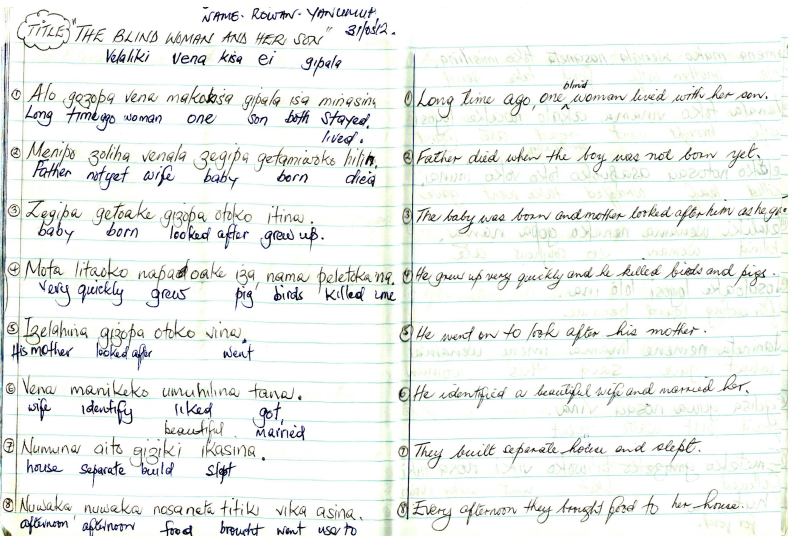 NAME- ROWAN- YANUMUT
31/05/12.
TITLE "THE BLIND WOMAN AND HER SON"
Velaliki vena kisa ei gipala
① Alo gozopa vena makokisa gipala isa minasina
Long time ago woman one son both stayed.
lived.
② Menipo zoliha venala zegipa getamiazoko hilin.
Father not yet wife baby born died
③ Zegipa getoake gizopa otoko itina.
baby born looked after grew up.
④ Mota litaoko napadoake iza, nama peletoka na.
very quickly grew pig birds killed
⑤ Izelahina gizopa otoko vina.
His mother looked after went
⑥ Vena manikeko umuhilina tana.
wife identify liked got,
beautiful married
⑦ Numuna aito giziki ikasina.
house separate build slept
⑧ Nuwaka, nuwaka nosaneta titiki vika asina.
afternoon, afternoon food brought went use to
① Long time ago one blind woman lived with her son.
② Father died when the boy was not born yet.
③ The baby was born and mother looked after him as he
④ He grew up very quickly and he killed birds and pigs.
⑤ He went on to look after his mother.
⑥ He identified a beautiful wife and married her.
⑦ They built separate house and slept.
⑧ Every afternoon they brought food to her house.